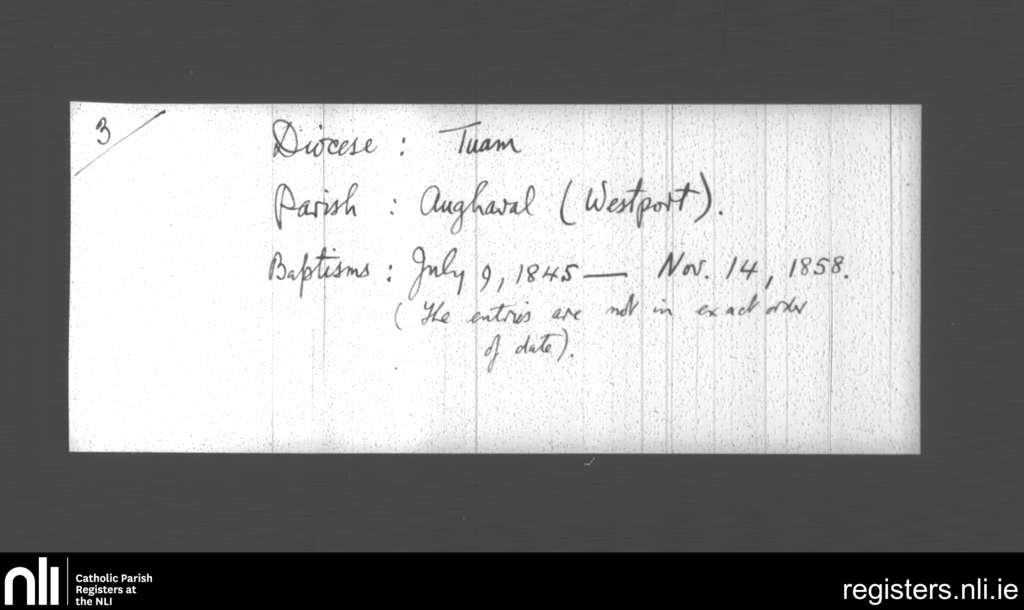 3
Diocese : Tuam
Parish : Aughaval (Westport).
Baptisms : July 9, 1845 — Nov. 14, 1858.
(The entries are not in exact order
of date).
nli
Catholic Parish
Registers at
the NLI
registers.nli.ie